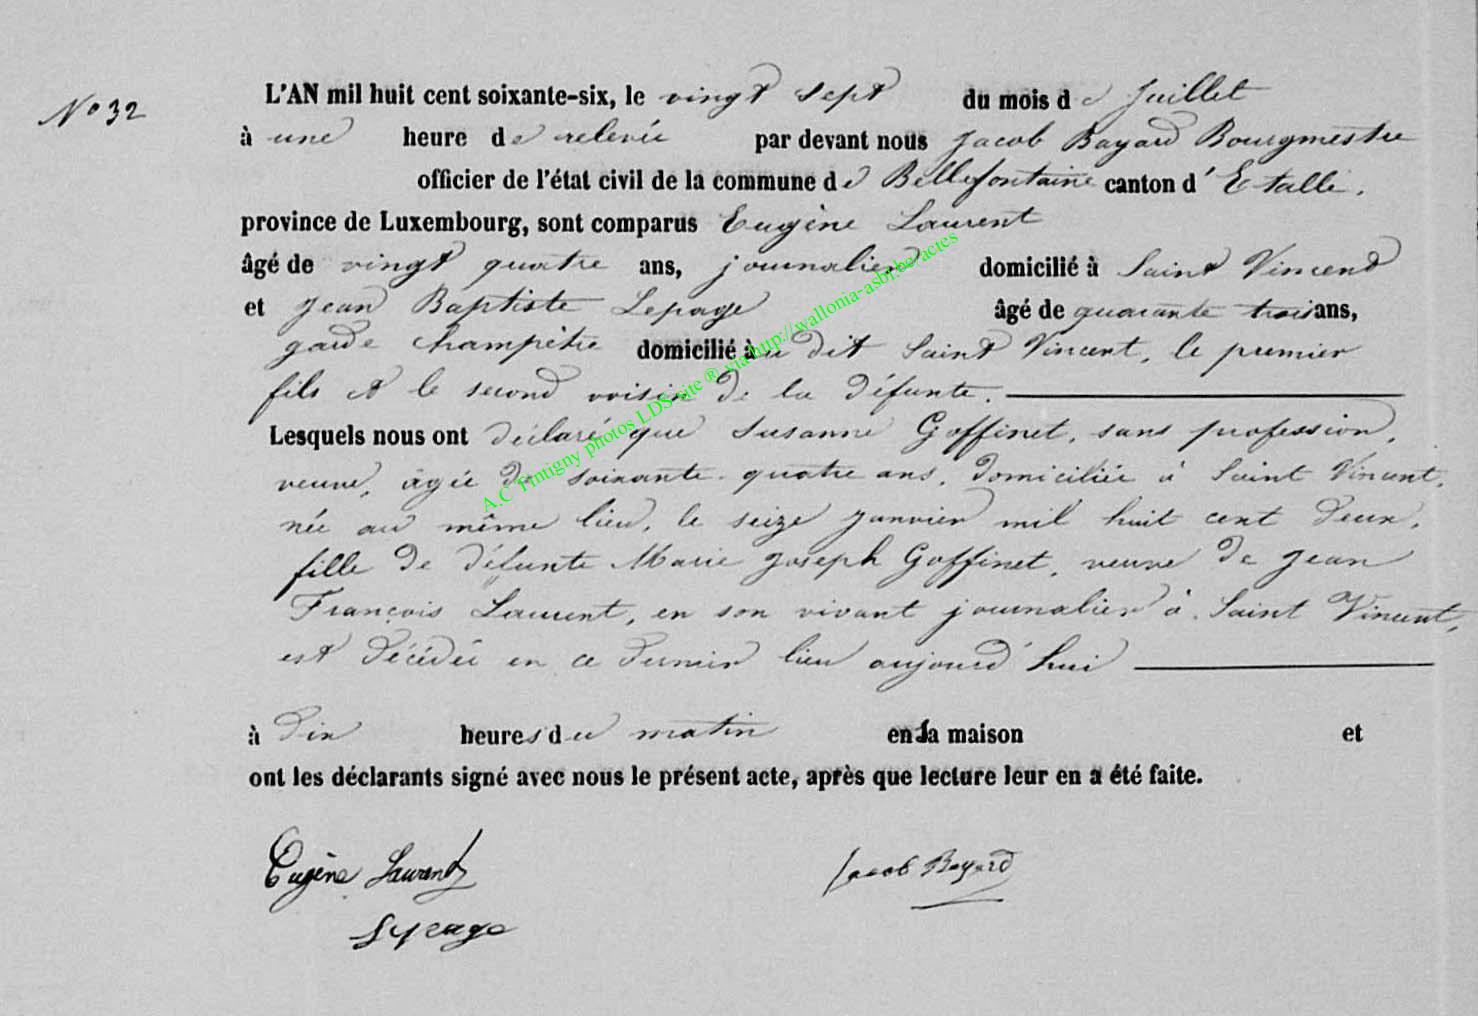 N° 32
L'AN mil huit cent soixante-six, le vingt sept du mois de Juillet
à une heure de relevée par devant nous Jacob Bayard Bourgmestre
officier de l'état civil de la commune de Bellefontaine canton d' Etalle,
province de Luxembourg, sont comparus Eugène Laurent
âgé de vingt quatre ans, journalier domicilié à Saint Vincent
et Jean Baptiste Lepage âgé de quarante trois ans,
garde champêtre domicilié au dit Saint Vincent, le premier
fils et le second voisin de la défunte.
Lesquels nous ont déclaré que Susanne Goffinet, sans profession,
veuve, âgée de soixante-quatre ans, domiciliée à Saint Vincent,
née au même lieu, le seize Janvier mil huit cent deux,
fille de défunte Marie Joseph Goffinet, veuve de Jean
François Laurent, en son vivant journalier à Saint Vincent,
est décédée en ce dernier lieu aujourd'hui
à dix heures du matin en sa maison et
ont les déclarants signé avec nous le présent acte, après que lecture leur en a été faite.
Eugène Laurent Jacob Bayard
Lepage
A.C Tintigny photos LDS site ® via http://wallonia-asbl.be/actes